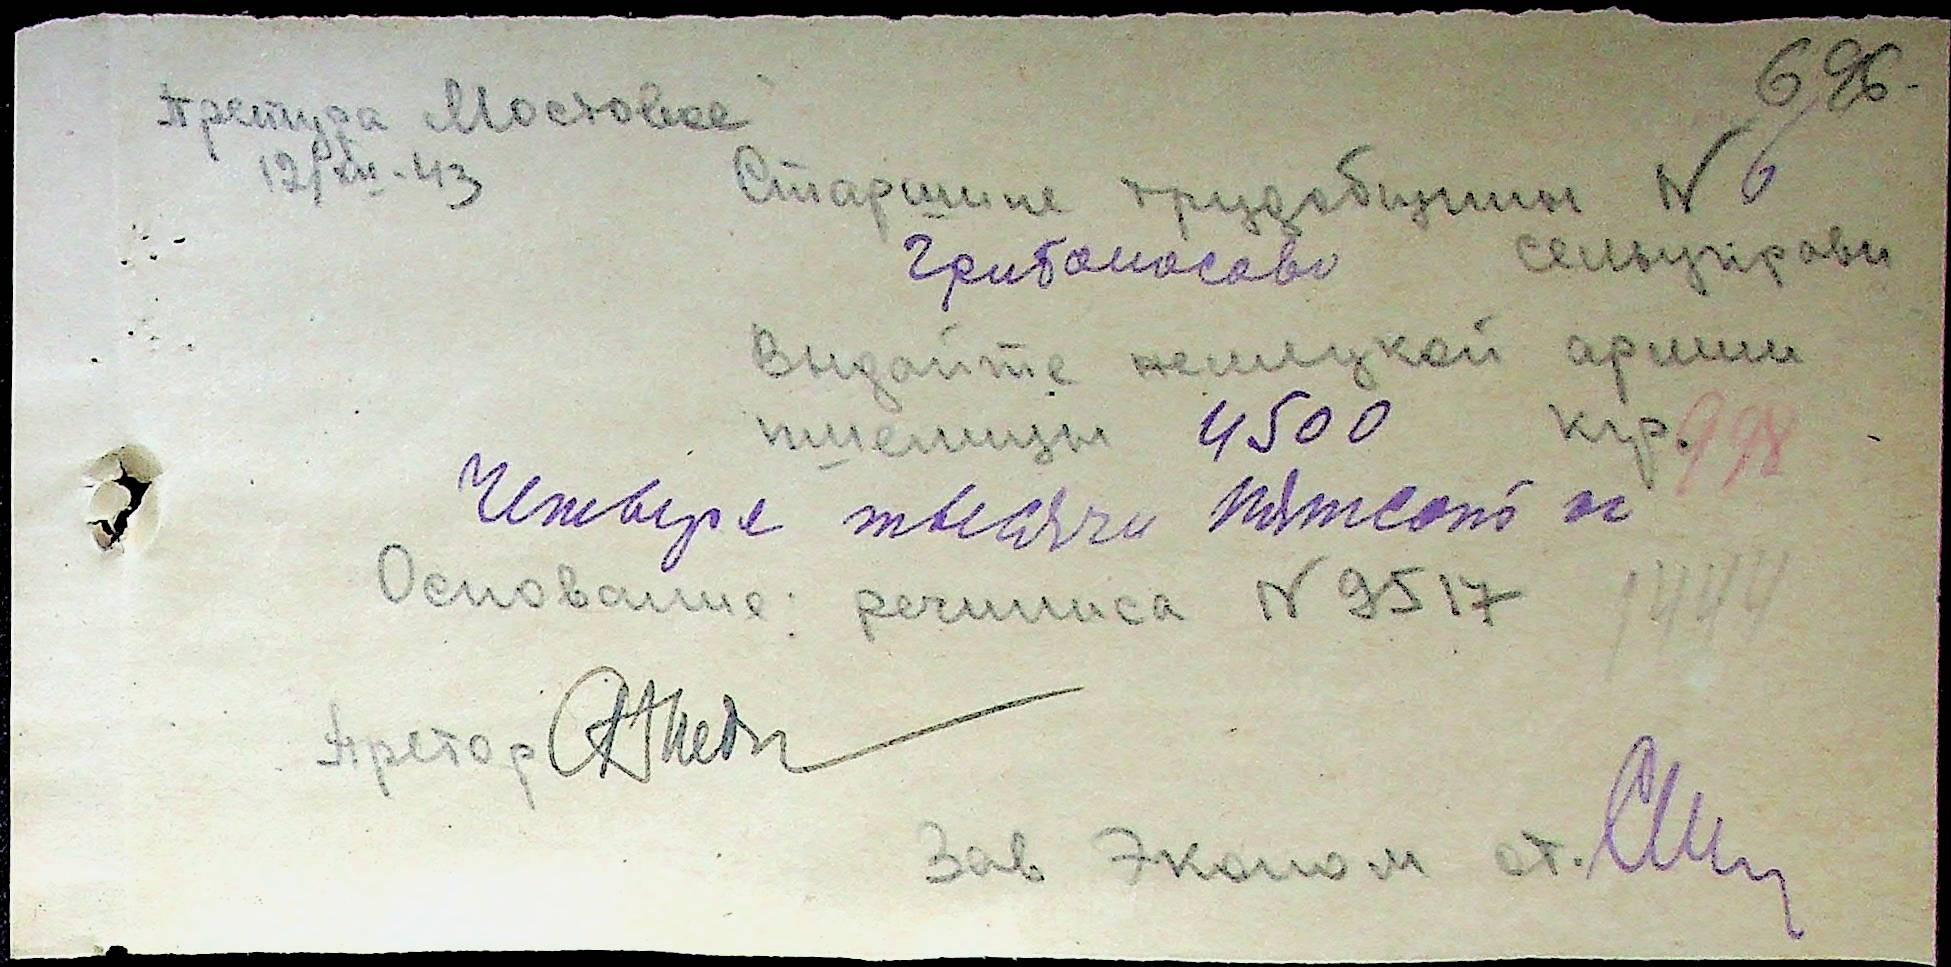 696.
Претура Мостовое
12/XII-43
Старшине трудобщины N 6
Грибоносово сельуправы
Выдайте немецкой армии
пшеницы 4500 кгр. 998
Четыре тысячи пятьсот кг
Основание: речиписа N 9517 1444
Претор
Зав Эконом от.